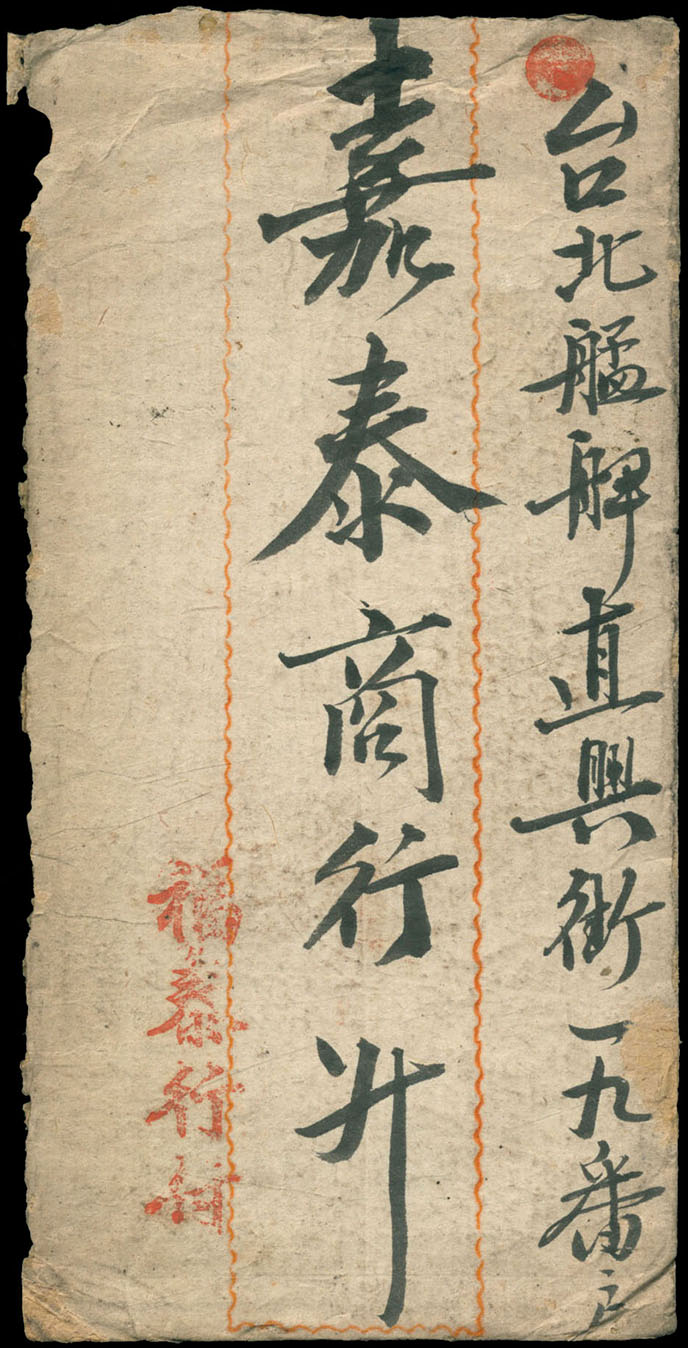 台北艋舺直興街一九番戶
嘉泰商行升
福泰行付